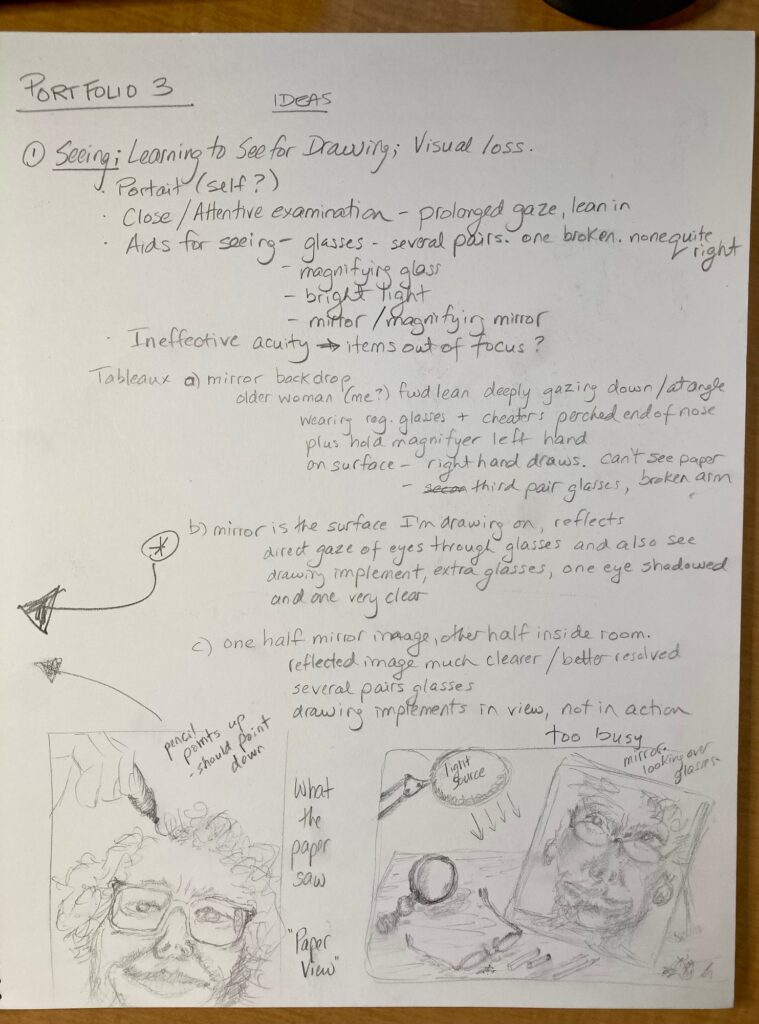 PORTFOLIO 3
IDEAS
① Seeing; Learning to See for Drawing; Visual loss.
· Portait (self?)
· Close / Attentive examination - prolonged gaze, lean in
· Aids for seeing - glasses - several pairs. one broken. none quite right
- magnifying glass
- bright light
- mirror / magnifying mirror
· Ineffective acuity → items out of focus?
Tableaux a) mirror backdrop
older woman (me?) fwd lean deeply gazing down / at angle
wearing reg. glasses + cheaters perched end of nose
plus hold magnifyer left hand
on surface - right hand draws. can't see paper
- third pair glasses, broken arm
* b) mirror is the surface I'm drawing on, reflects
direct gaze of eyes through glasses and also see
drawing implement, extra glasses, one eye shadowed
and one very clear
c) one half mirror image, other half inside room.
reflected image much clearer / better resolved
several pairs glasses
drawing implements in view, not in action
too busy
pencil
points up
- should point
down
What
the
paper
saw
"Paper
View"
light
source
mirror.
looking over
glasses